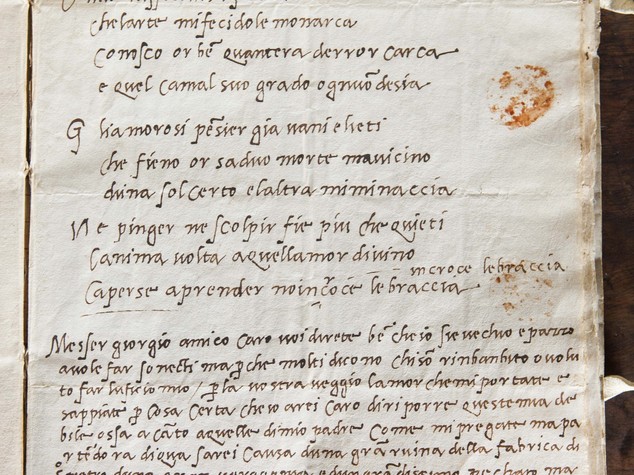 che larte mi fecidole monarca
conosco or bē quantera derror carca
e quel camal suo grado ognuō desia
Gli amorosi pēsier gia vani e lieti
che fieno or sa duo morte mavicino
duna sol certo e laltra mi minaccia
Ne pinger ne scolpir fie piu che quieti
lanima volta a quellamor divino
in croce le braccia
caperse a prender noi ncroce le braccia
Messer giorgio amico caro voi direte bē cheio sie vechio e pazzo
a vole far sonecti ma pche molti dicono chi sō rinbanbito o volu
to far luficio mio / p la vostra veggio lamor che mi portate e
sappiate p cosa certa che io arei caro di riporre queste mia de
bile ossa a cāto a quelle di mio padre come mi pregate ma pa
rtēdo ra di qua sarei causa duna grā ruina della fabrica di